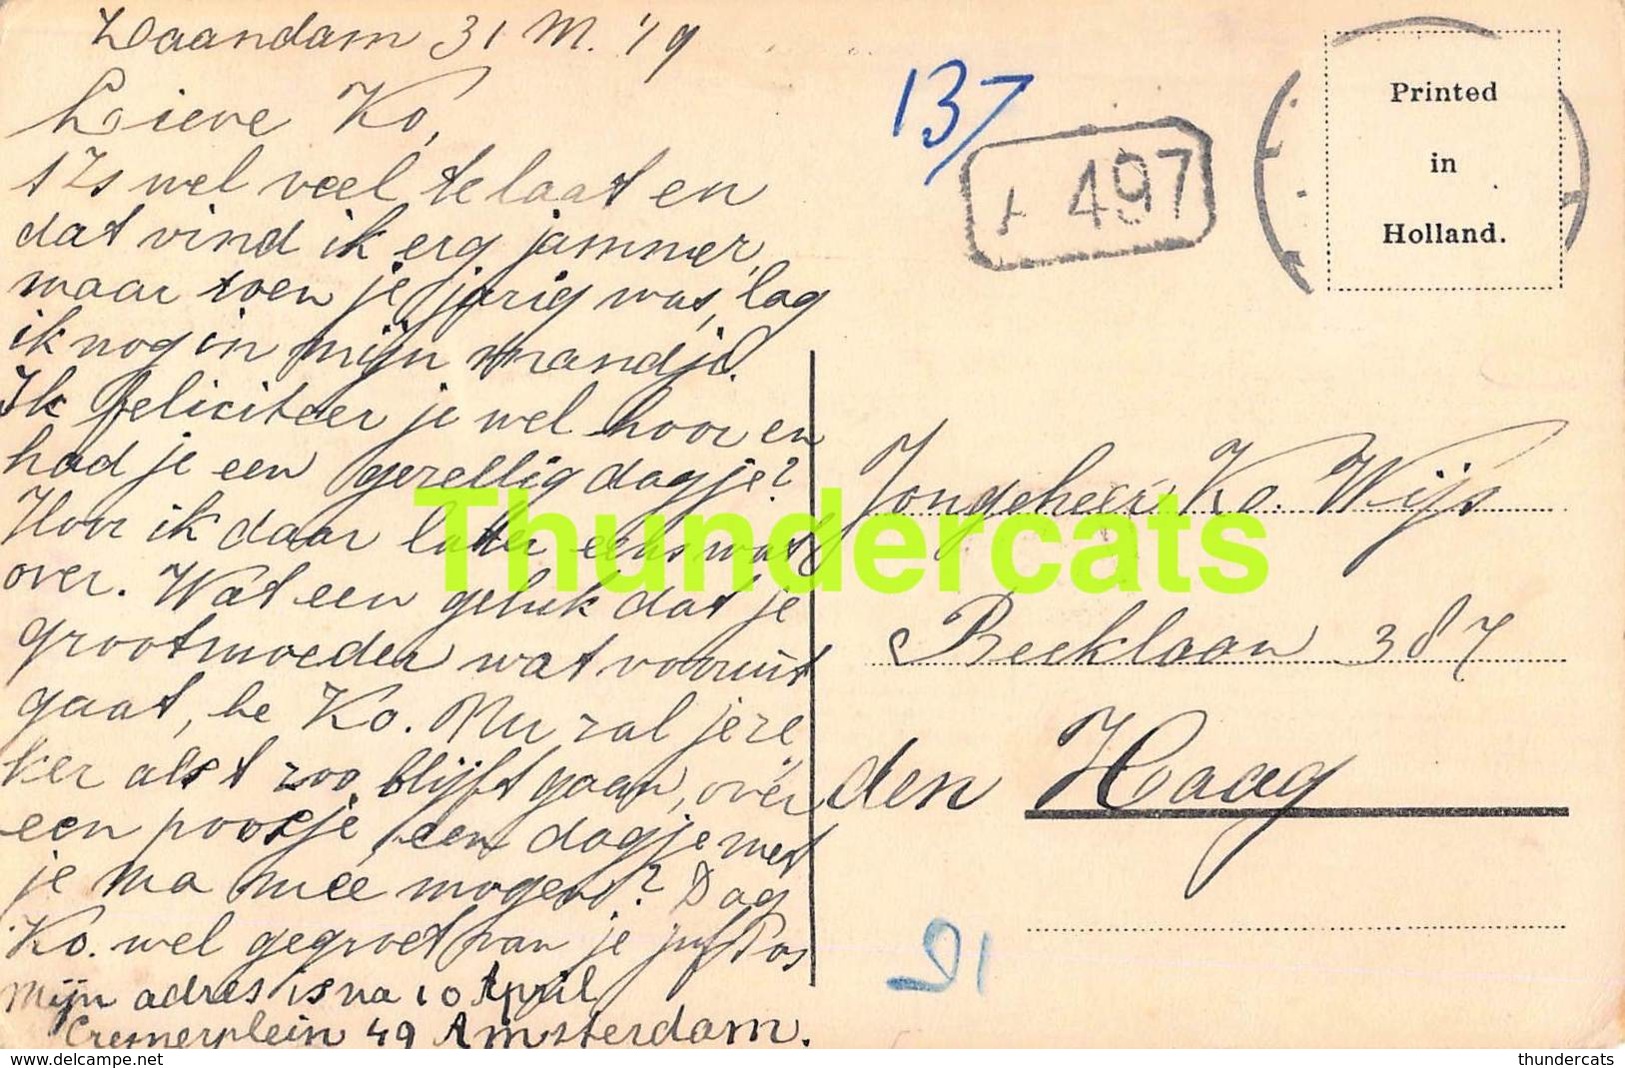 Zaandam 31 M. '19
Lieve Ko,
't Is wel veel te laat en
dat vind ik erg jammer,
maar toen je jarig was, lag
ik nog in mijn mandje.
Ik feliciteer je wel hoor en
had je een gezellig dagje?
Hoor ik daar later eens wat
over. Wat een geluk dat je
grootmoeder wat vooruit
gaat, he Ko. Nu zal je ze
ker als 't zoo blijft gaan, over
een poosje, een dagje met
je ma mee mogen? Dag
Ko. wel gegroet van je juf Pos
Mijn adres is na 10 April
Cremerplein 49 Amsterdam.
137
497
Printed
in
Holland.
Jongeheer Ko. Wijs
Beeklaan 387
den Haag
21
Thundercats
thundercats
www.delcampe.net